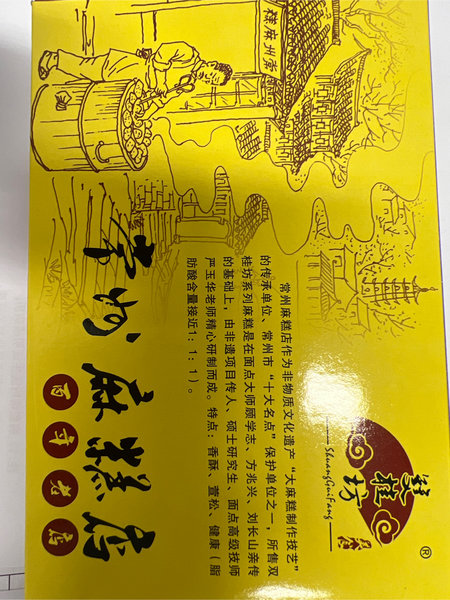 糕麻州常
雙桂坊
®
ShuangGuiFang
常州麻糕店作为非物质文化遗产“大麻糕制作技艺”
的传承单位、常州市“十大名点”保护单位之一，所售双
桂坊系列麻糕是在面点大师顾学志、方兆兴、刘长山亲传
的基础上，由非遗项目传人、硕士研究生、面点高级技师
严玉华老师精心研制而成。特点：香酥、萱松、健康（脂
肪酸含量接近1：1：1）。
常州麻糕店
百年老店